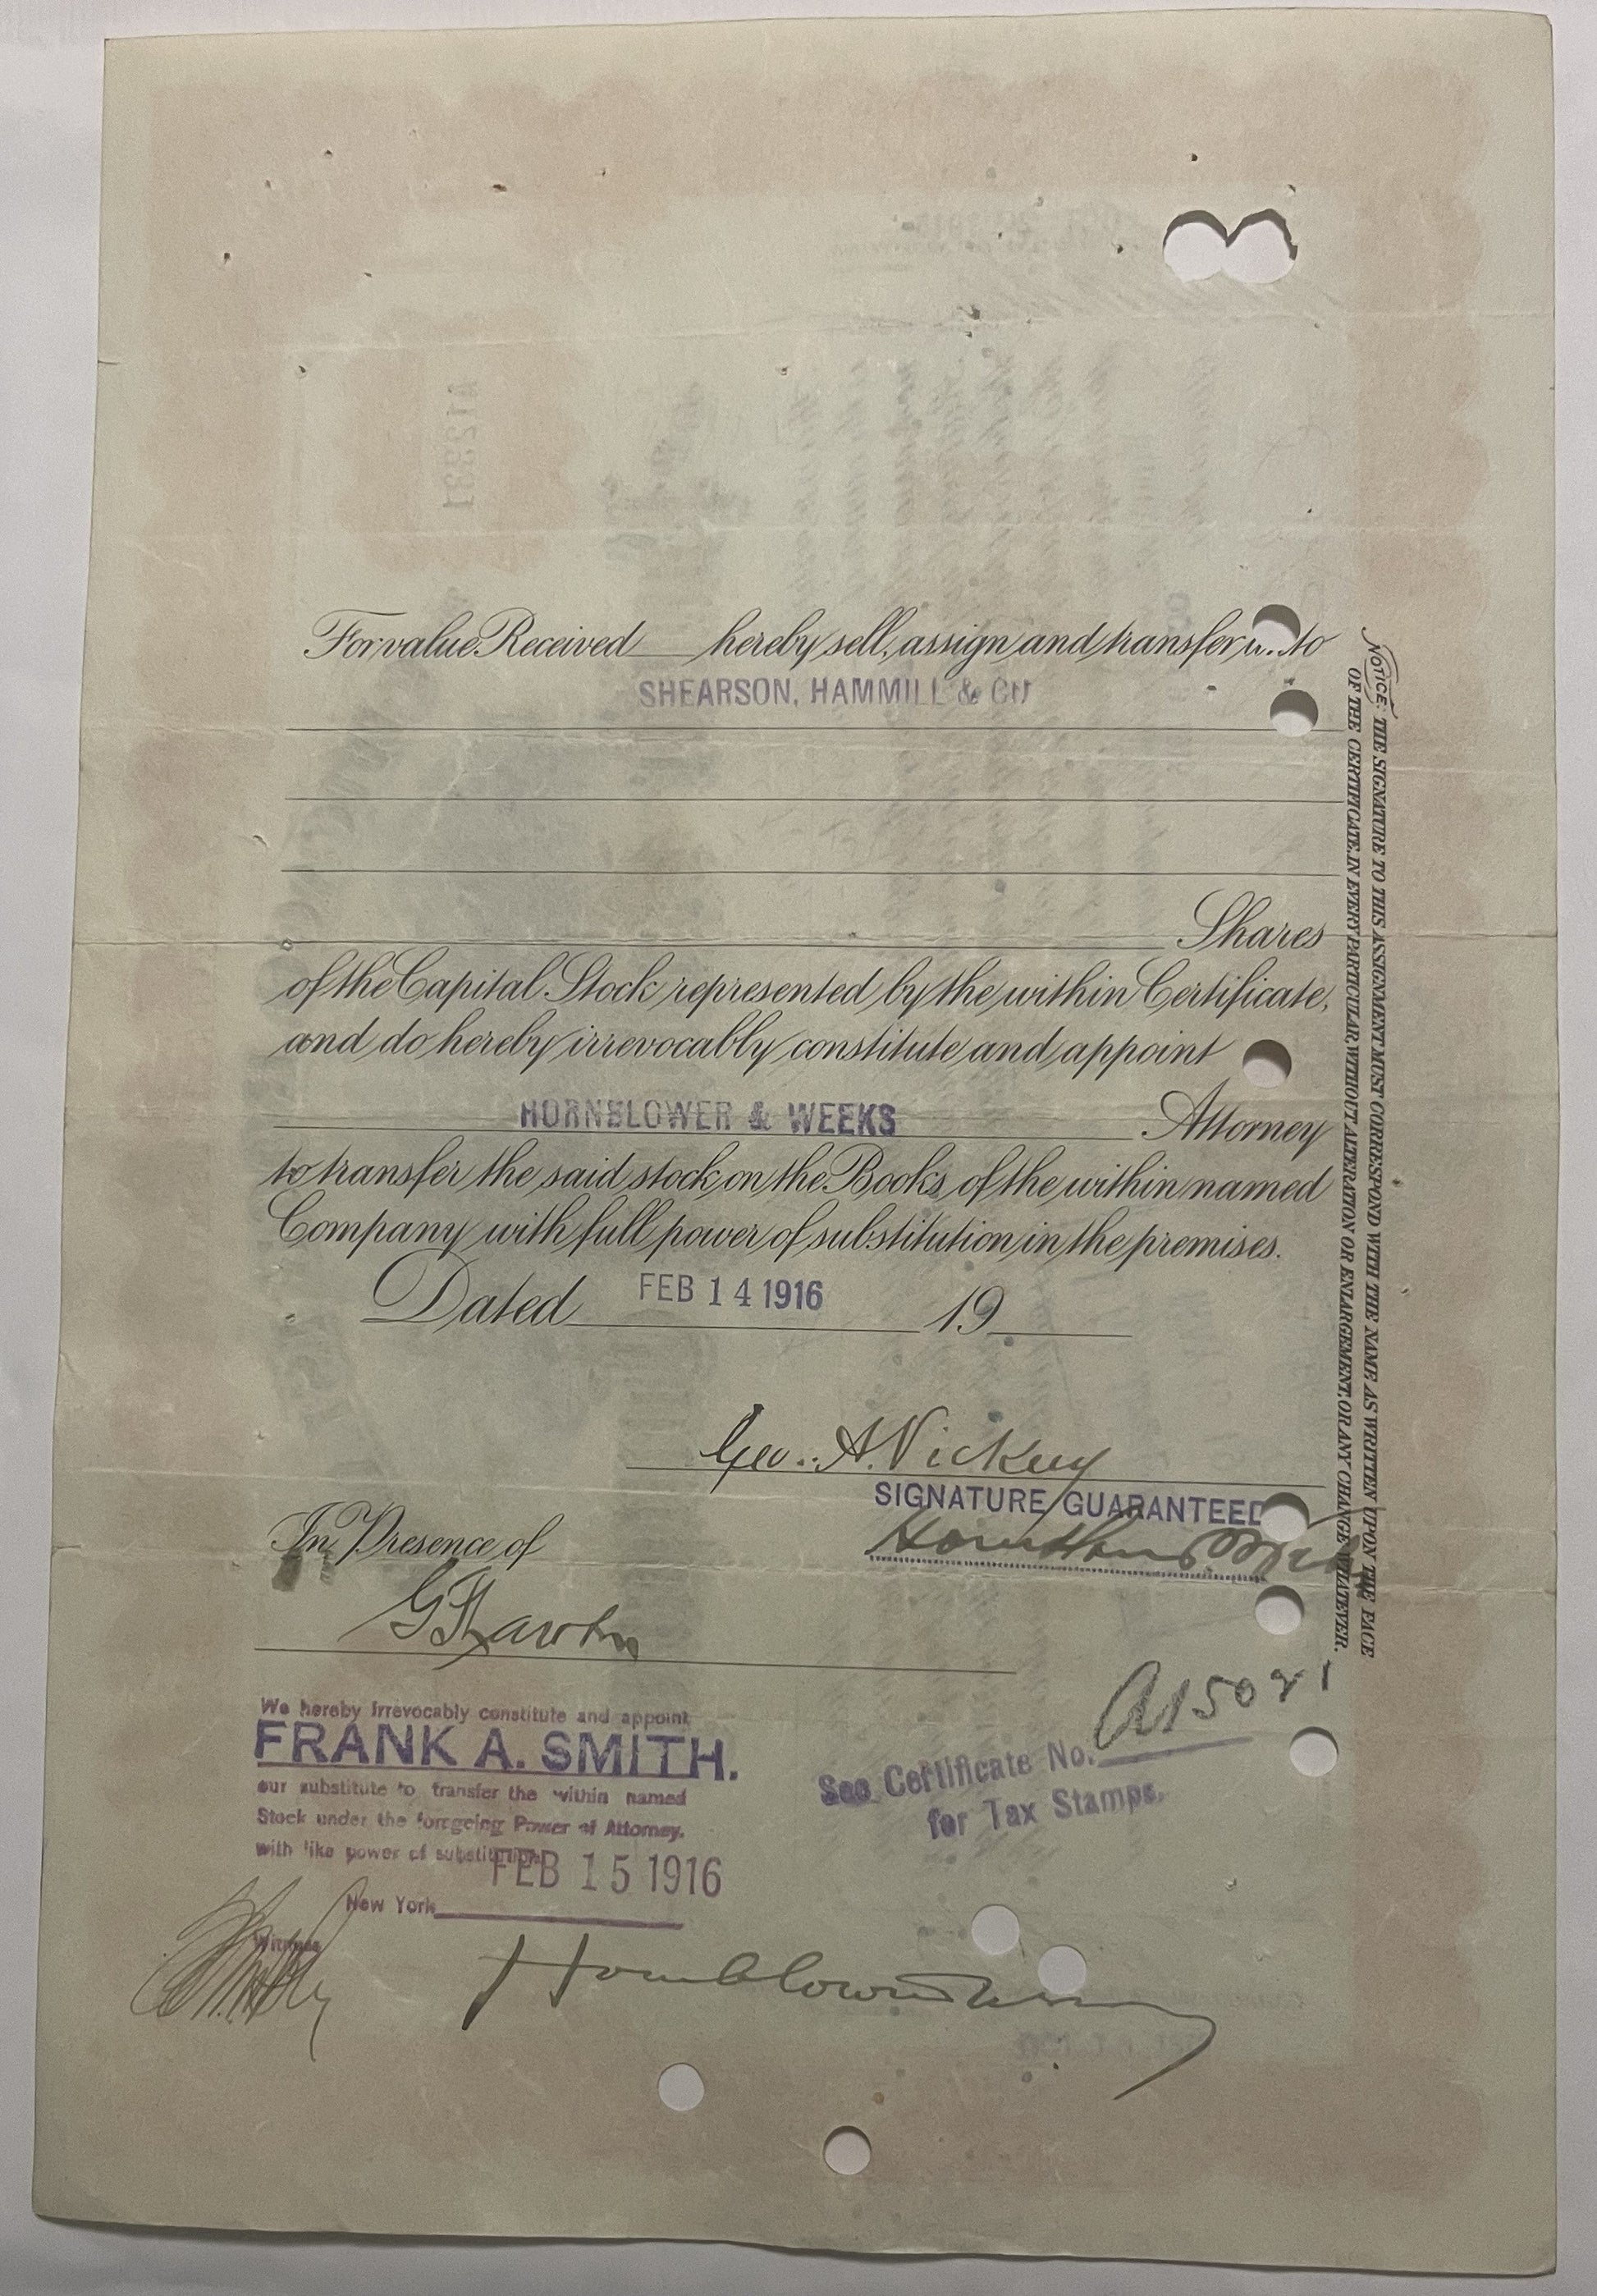 For value Received hereby sell, assign and transfer to
SHEARSON, HAMMILL & CO
Shares
of the Capital Stock represented by the within Certificate,
and do hereby irrevocably constitute and appoint
HORNBLOWER & WEEKS Attorney
to transfer the said stock on the Books of the within named
Company with full power of substitution in the premises.
Dated FEB 14 1916 19
Geo. A. Vickery
SIGNATURE GUARANTEED
Hornblower & Weeks
In Presence of
We hereby irrevocably constitute and appoint
FRANK A. SMITH.
our substitute to transfer the within named
Stock under the foregoing Power of Attorney.
with like power of substitution
FEB 15 1916
New York
Witness
Hornblower & Weeks
See Certificate No. A15021
for Tax Stamps.
NOTICE: THE SIGNATURE TO THIS ASSIGNMENT MUST CORRESPOND WITH THE NAME AS WRITTEN UPON THE FACE
OF THE CERTIFICATE, IN EVERY PARTICULAR, WITHOUT ALTERATION OR ENLARGEMENT, OR ANY CHANGE WHATEVER.